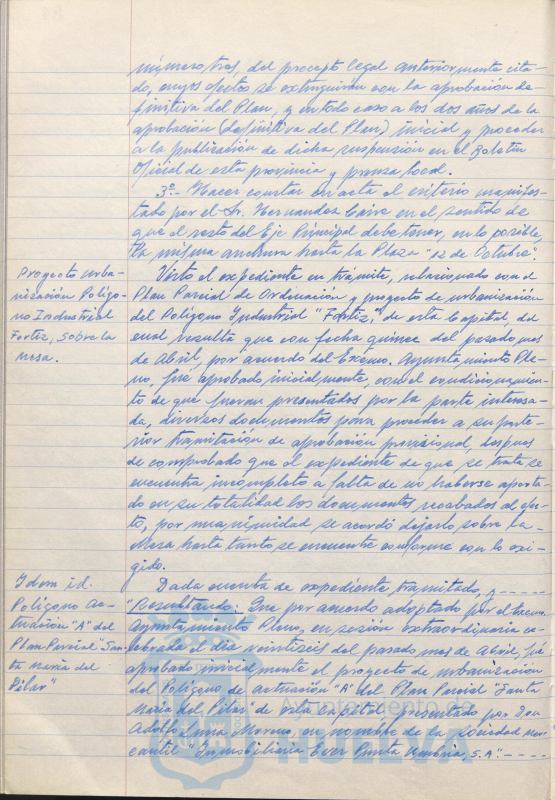 número tres, del precepto legal anteriormente cita-
do, cuyos efectos se extinguirán con la aprobación de-
finitiva del Plan, y en todo caso a los dos años de la
aprobación (definitiva del Plan) inicial y proceder
a la publicación de dicha suspensión en el Boletín
Oficial de esta provincia y prensa local.
3º.- Hacer constar en acta el criterio manifes-
tado por el Sr. Hernandez Caire en el sentido de
que el resto del Eje Principal debe tener, en lo posible,
la misma anchura hasta la Plaza "12 de Octubre".
Proyecto urba-
nización Polígo-
no Industrial
Fortiz, sobre la
mesa.
Visto el expediente en trámite, relacionado con el
Plan Parcial de Ordenación y proyecto de urbanización
del Polígono Industrial "Fortiz", de esta Capital, del
cual resulta que con fecha quince del pasado mes
de Abril, por acuerdo del Excmo. Ayuntamiento Ple-
no, fué aprobado inicialmente, con el condicionamien-
to de que fueran presentados por la parte interesa-
da, diversos documentos para proceder a su poste-
rior tramitación de aprobación provisional, despues
de comprobado que el expediente de que se trata se
encuentra incompleto a falta de no haberse aporta-
do en su totalidad los documentos recabados al efec-
to, por unanimidad se acordó dejarlo sobre la
Mesa hasta tanto se encuentre conforme con lo exi-
gido.
Idem id.
Polígono ac-
tuación "A" del
Plan Parcial "San-
ta María del
Pilar"
Dada cuenta de expediente tramitado, y-----
"Resultando: Que por acuerdo adoptado por el Excmo.
Ayuntamiento Pleno, en sesión extraordinaria ce-
lebrada el dia veintiseis del pasado mes de Abril, fue
aprobado inicialmente el proyecto de urbanización
del Polígono de actuación "A" del Plan Parcial "Santa
María del Pilar" de esta capital presentado por Don
Adolfo Luna Moreno, en nombre de la Sociedad mer-
cantil "Inmobiliaria Ever Punta Umbría, S.A".----
Ayuntamiento de
HUELVA